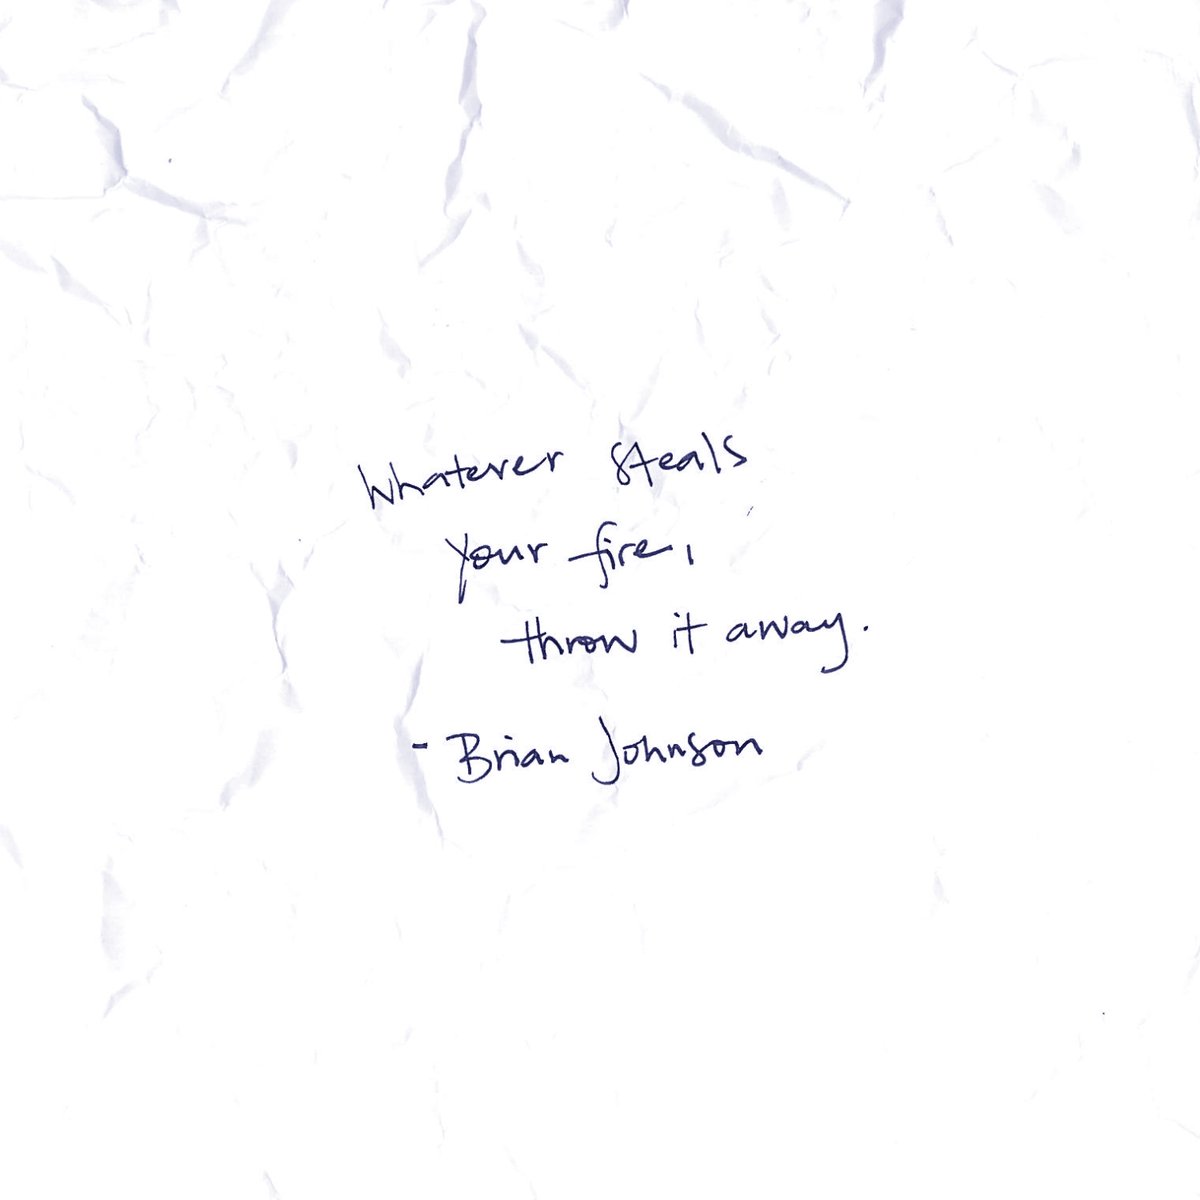 Whatever steals
your fire,
throw it away.
- Brian Johnson